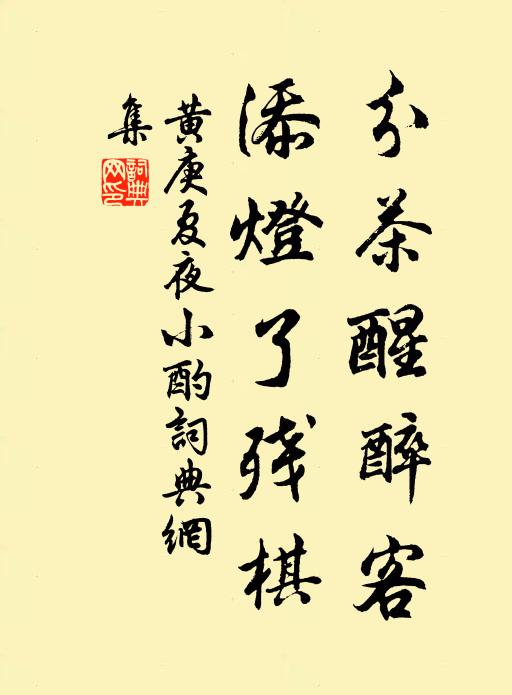 分茶醒醉客
添燈了残棋
黄庚夏夜小酌詞典網
集
詞典
网印